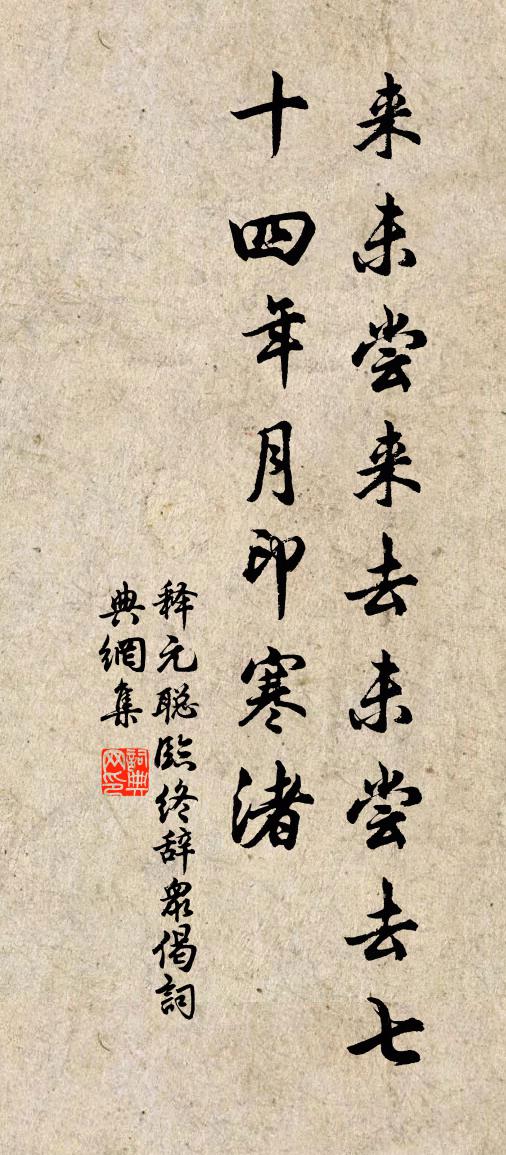 来未尝来去未尝去七
十四年月印寒渚
释元聪临终辞众偈詞
典網集
詞典
网印